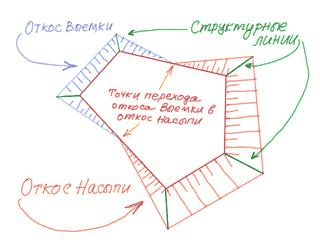 Откос Выемки
Структурные
линии
Точки перехода
откоса Выемки в
откос Насыпи
Откос Насыпи